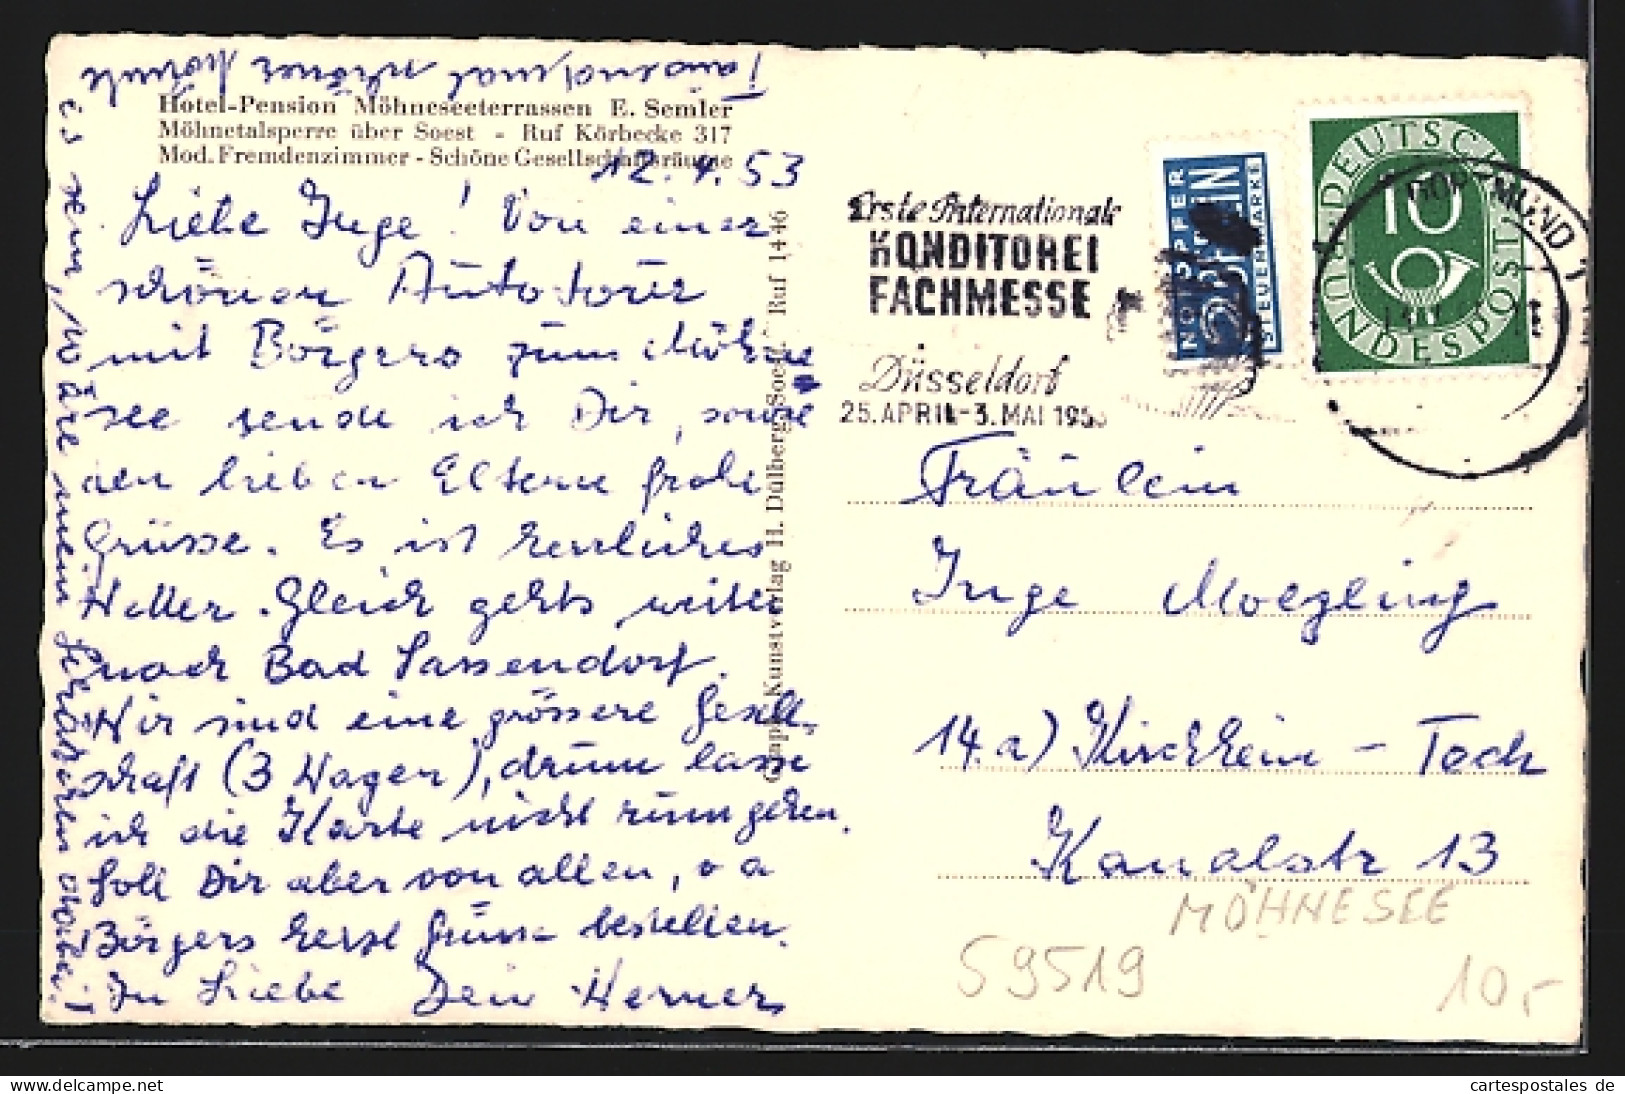 Hotel-Pension Möhneseeterrassen E. Semler
Möhnetalsperre über Soest - Ruf Körbecke 317
Mod. Fremdenzimmer - Schöne Gesellschaftsräume
12.4.53
Liebe Inge! Von einer
schönen Autotour
mit Börgers zum Möhne
see sende ich Dir, sowie
den lieben Eltern frohe
Grüsse. Es ist herrliches
Wetter. Gleich gehts weiter
nach Bad Sassendorf.
Wir sind eine grössere Gesell-
schaft (3 Wagen), drum lasse
ich die Karte nicht rumgehen.
Soll Dir aber von allen, v a
Börgers herzl Grüsse bestellen.
In Liebe Dein Werner
Tausendmal schöner könnte
es sein, wäre mein Schätzelein dabei!
Graph. Kunstverlag H. Dülberg, Soest Ruf 1446
Erste Internationale
KONDITOREI
FACHMESSE
Düsseldorf
25. APRIL-3. MAI 1953
NOTOPFER
2 BERLIN
STEUERMARKE
DEUTSCHE
BUNDESPOST
10
DORTMUND 1
Fräulein
Inge Moegling
14.a) Kirchheim - Teck
Kanalstr 13
MÖHNESEE
59519
10,-
More from oldthing
cartespostales de